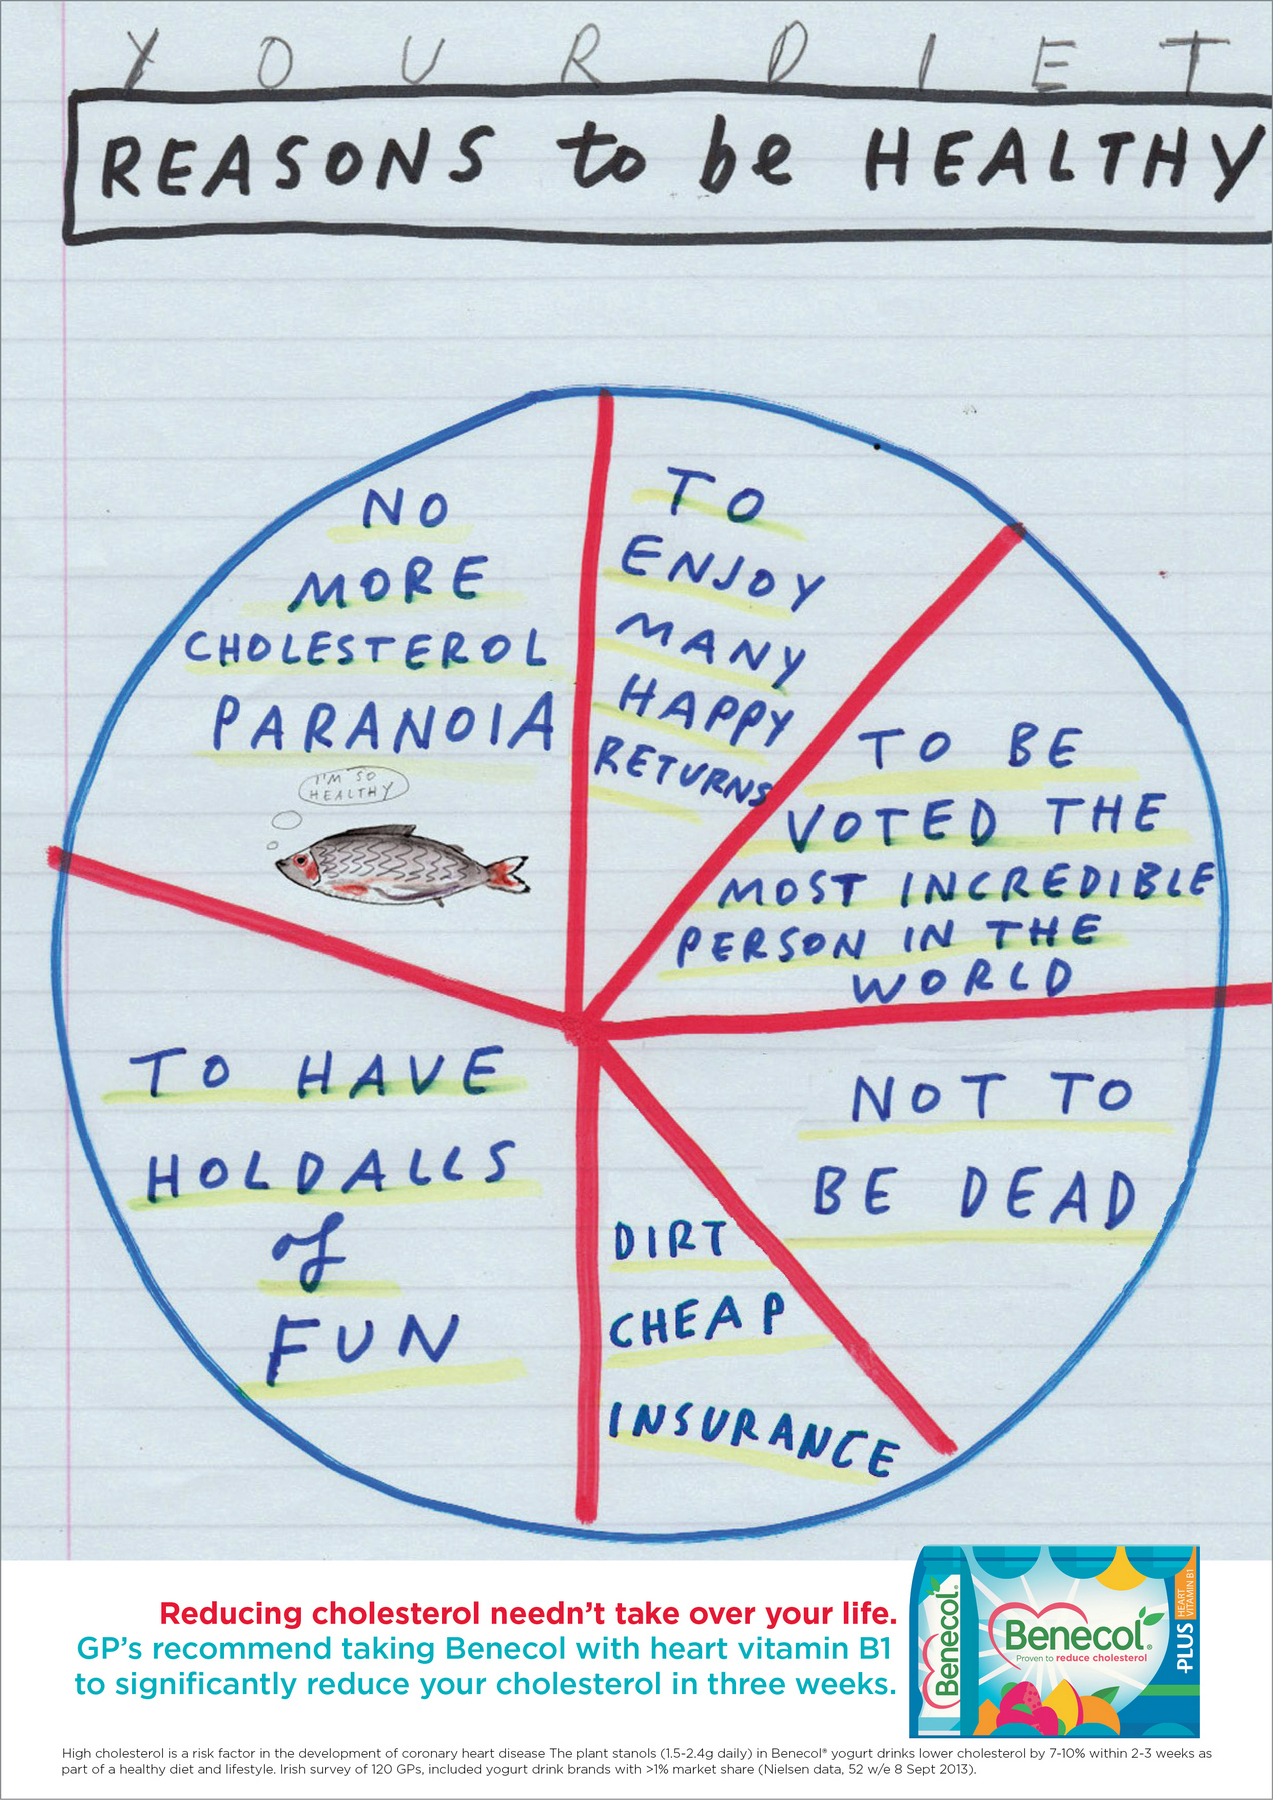 YOUR DIET
REASONS to be HEALTHY
NO
MORE
CHOLESTEROL
PARANOIA
I'M SO
HEALTHY
TO
ENJOY
MANY
HAPPY
RETURNS
TO BE
VOTED THE
MOST INCREDIBLE
PERSON IN THE
WORLD
NOT TO
BE DEAD
DIRT
CHEAP
INSURANCE
TO HAVE
HOLDALLS
of
FUN
Reducing cholesterol needn't take over your life.
GP's recommend taking Benecol with heart vitamin B1
to significantly reduce your cholesterol in three weeks.
Benecol®
Benecol®
Proven to reduce cholesterol
PLUS
HEART
VITAMIN B1
High cholesterol is a risk factor in the development of coronary heart disease The plant stanols (1.5-2.4g daily) in Benecol® yogurt drinks lower cholesterol by 7-10% within 2-3 weeks as
part of a healthy diet and lifestyle. Irish survey of 120 GPs, included yogurt drink brands with >1% market share (Nielsen data, 52 w/e 8 Sept 2013).